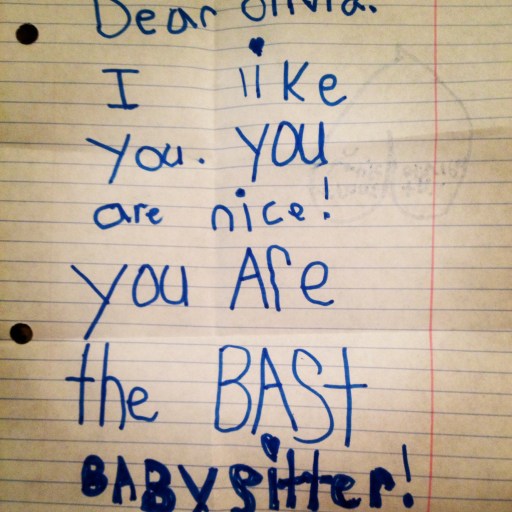 Dear Olivia.
I like
you. you
are nice!
you Are
the BASt
BABYsitter!